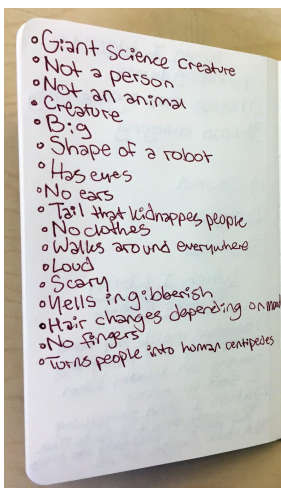 •Giant Science Creature
•Not a person
•Not an animal
•Creature
•Big
•Shape of a robot
•Has eyes
•No ears
•Tail that kidnappes people
•No clothes
•Walks around everywhere
•Loud
•Scary
•Yells in gibberish
•Hair changes depending on
•No fingers
•Turns people into human centipedes